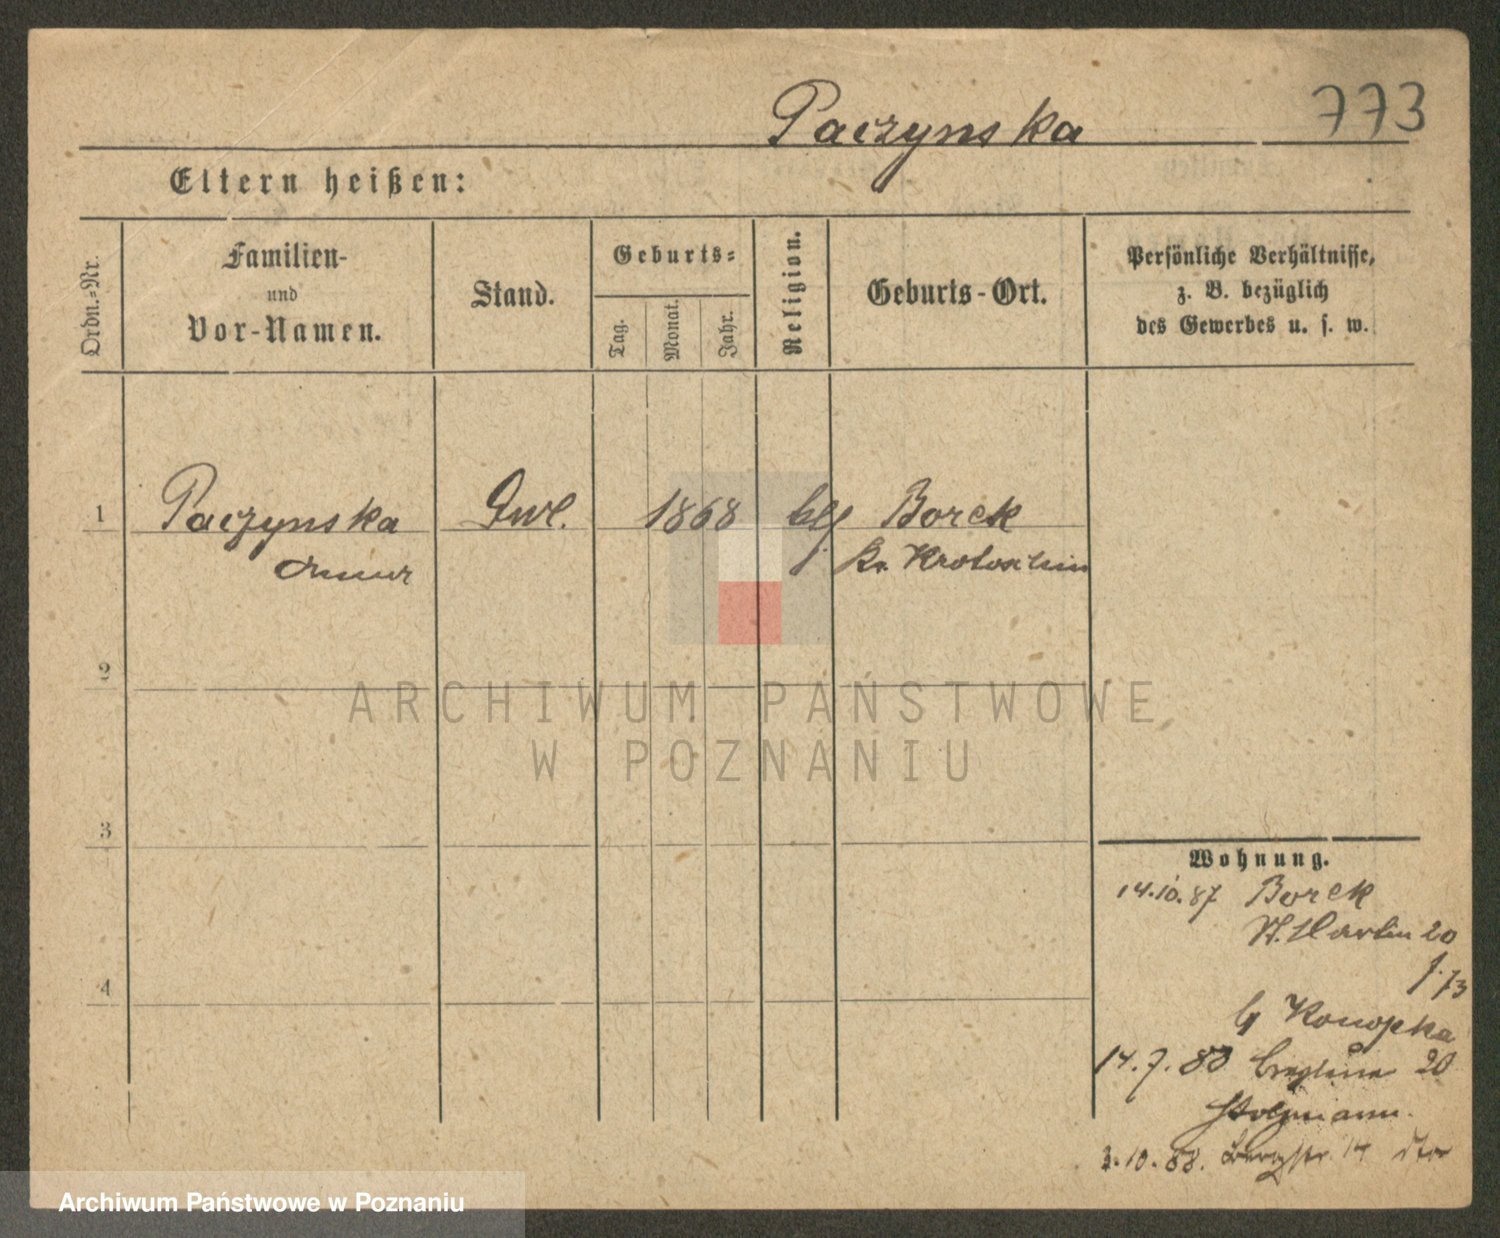 Paczynska 773
Eltern heißen:
Ordn.-Nr.
Familien-
und
Vor-Namen.
Stand.
Geburts-
Tag.
Monat.
Jahr.
Religion.
Geburts-Ort.
Persönliche Verhältnisse,
z. B. bezüglich
des Gewerbes u. s. w.
1 Paczynska 1868 Borek
Kr. Krotoschin
2
3
4
ARCHIWUM PAŃSTWOWE
W POZNANIU
Wohnung.
14.10.87 Borek
St. Martin 20
b/ Konopka
14.7.88 20
3.10.88. 14
Archiwum Państwowe w Poznaniu